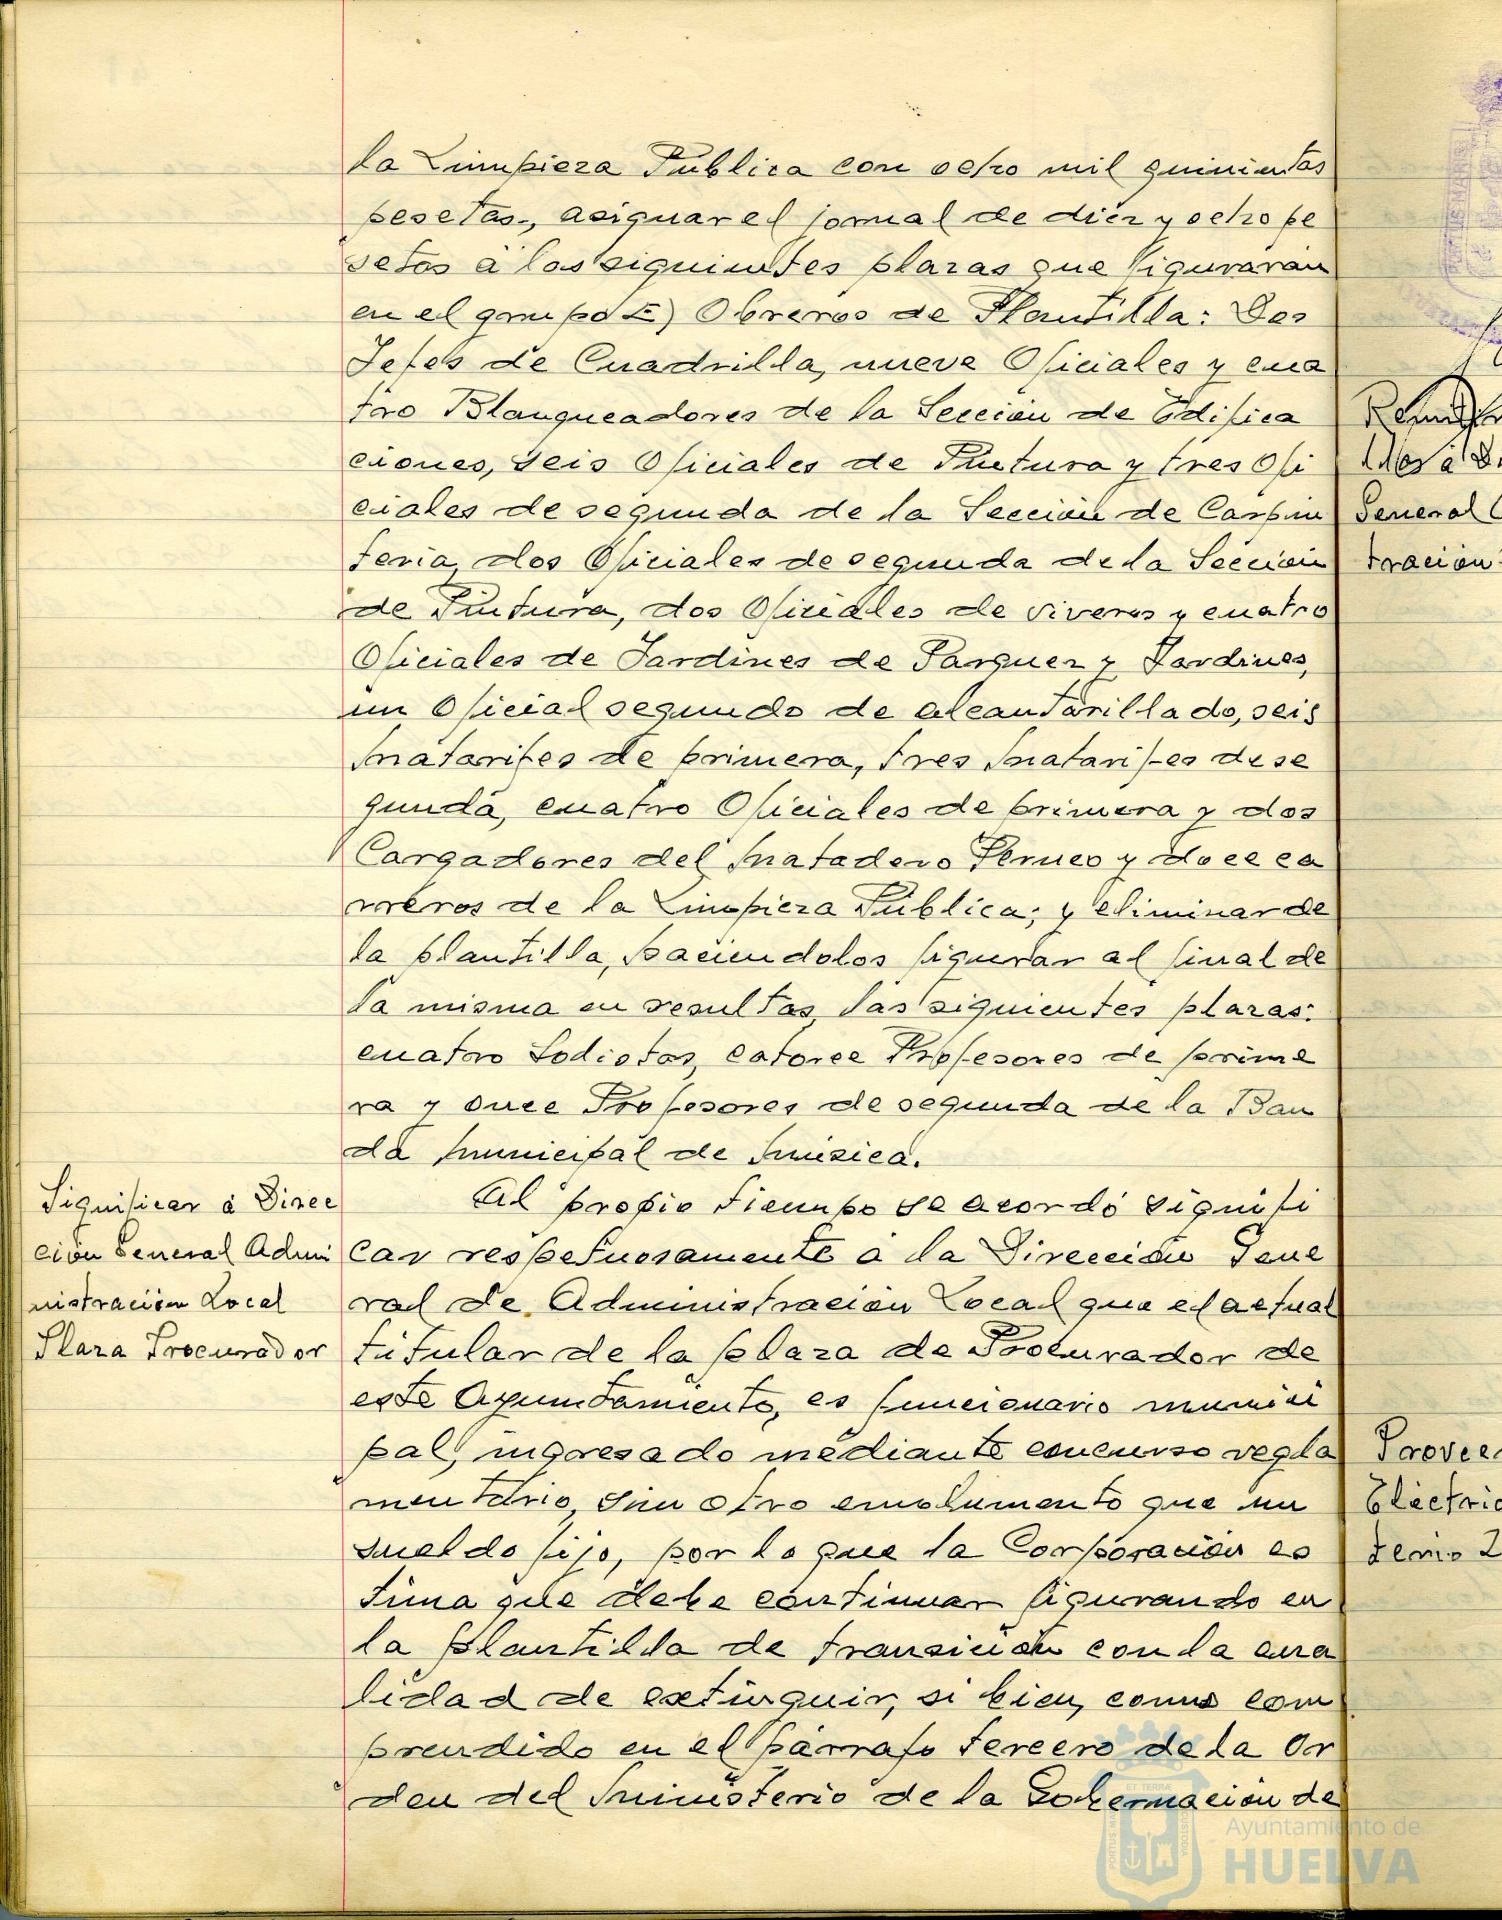 la Limpieza Pública con ocho mil quinientas
pesetas, asignar el jornal de diez y ocho pe
setas a las siguientes plazas que figuraran
en el grupo E) Obreros de Plantilla: Dos
Jefes de Cuadrilla, nueve Oficiales y cua
tro Blanqueadores de la Sección de Edifica
ciones, seis Oficiales de Pintura y tres Ofi
ciales de segunda de la Sección de Carpin
teria, dos Oficiales de segunda de la Sección
de Pintura, dos Oficiales de viveros y cuatro
Oficiales de Jardines de Parques y Jardines,
un Oficial segundo de alcantarillado, seis
Matarifes de primera, tres Matarifes de se
gunda, cuatro Oficiales de primera y dos
Cargadores del Matadero Público y doce ca
rreros de la Limpieza Pública; y eliminar de
la plantilla, haciendolos figurar al final de
la misma en resultas, las siguientes plazas:
cuatro Sodistas, catorce Profesores de prime
ra y once Profesores de segunda de la Ban
da Municipal de Música.
Significar á Direc
ción General Admi
nistración Local
Plaza Procurador
Al propio tiempo se acordó signifi
car respetuosamente a la Dirección Gene
ral de Administración Local que el actual
titular de la plaza de Procurador de
este Ayuntamiento, es funcionario munici
pal, ingresado mediante concurso regla
mentario, sin otro emolumento que un
sueldo fijo, por lo que la Corporación es
tima que debe continuar figurando en
la plantilla de transición con la cua
lidad de extinguir, si bien, como com
prendido en el párrafo tercero de la Or
den del Ministerio de la Gobernación de
General
tración
Provee
Electric
terio
Ayuntamiento de
HUELVA